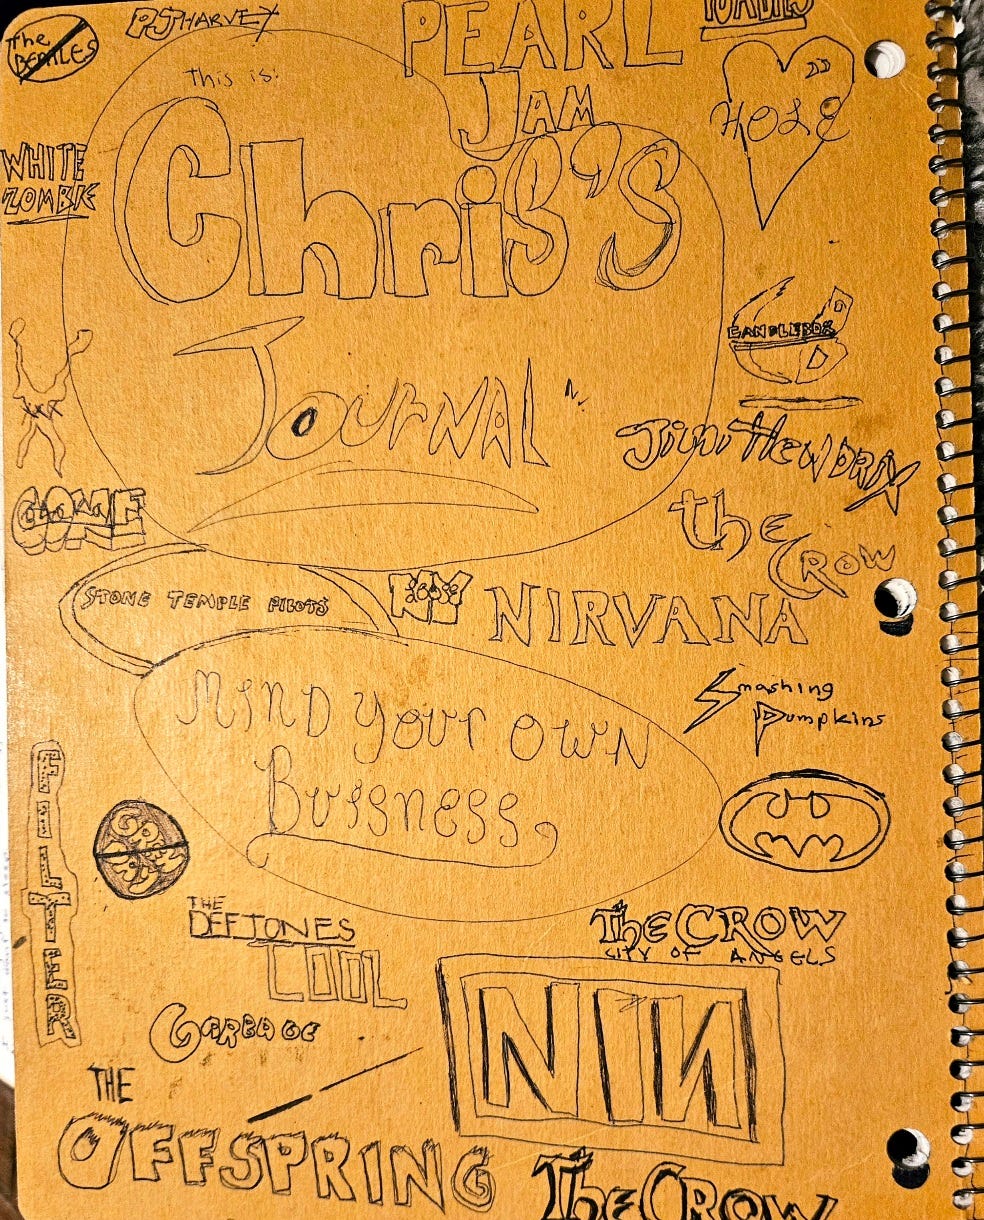 The
BEATLES
PJ HARVEY
PEARL
JAM
TOADIES
this is:
HOLE
WHITE
ZOMBIE
Chris's
CANDLEBOX
JOURNAL
Jimi HENDRIX
the
CROW
STONE TEMPLE PILOTS
NIRVANA
MIND YOUR OWN
BUISNESS
Smashing
Pumpkins
FILTER
GREEN
DAY
THE
DEFTONES
TOOL
THE CROW
CITY OF ANGELS
GARBAGE
NIN
THE
OFFSPRING
THE CROW